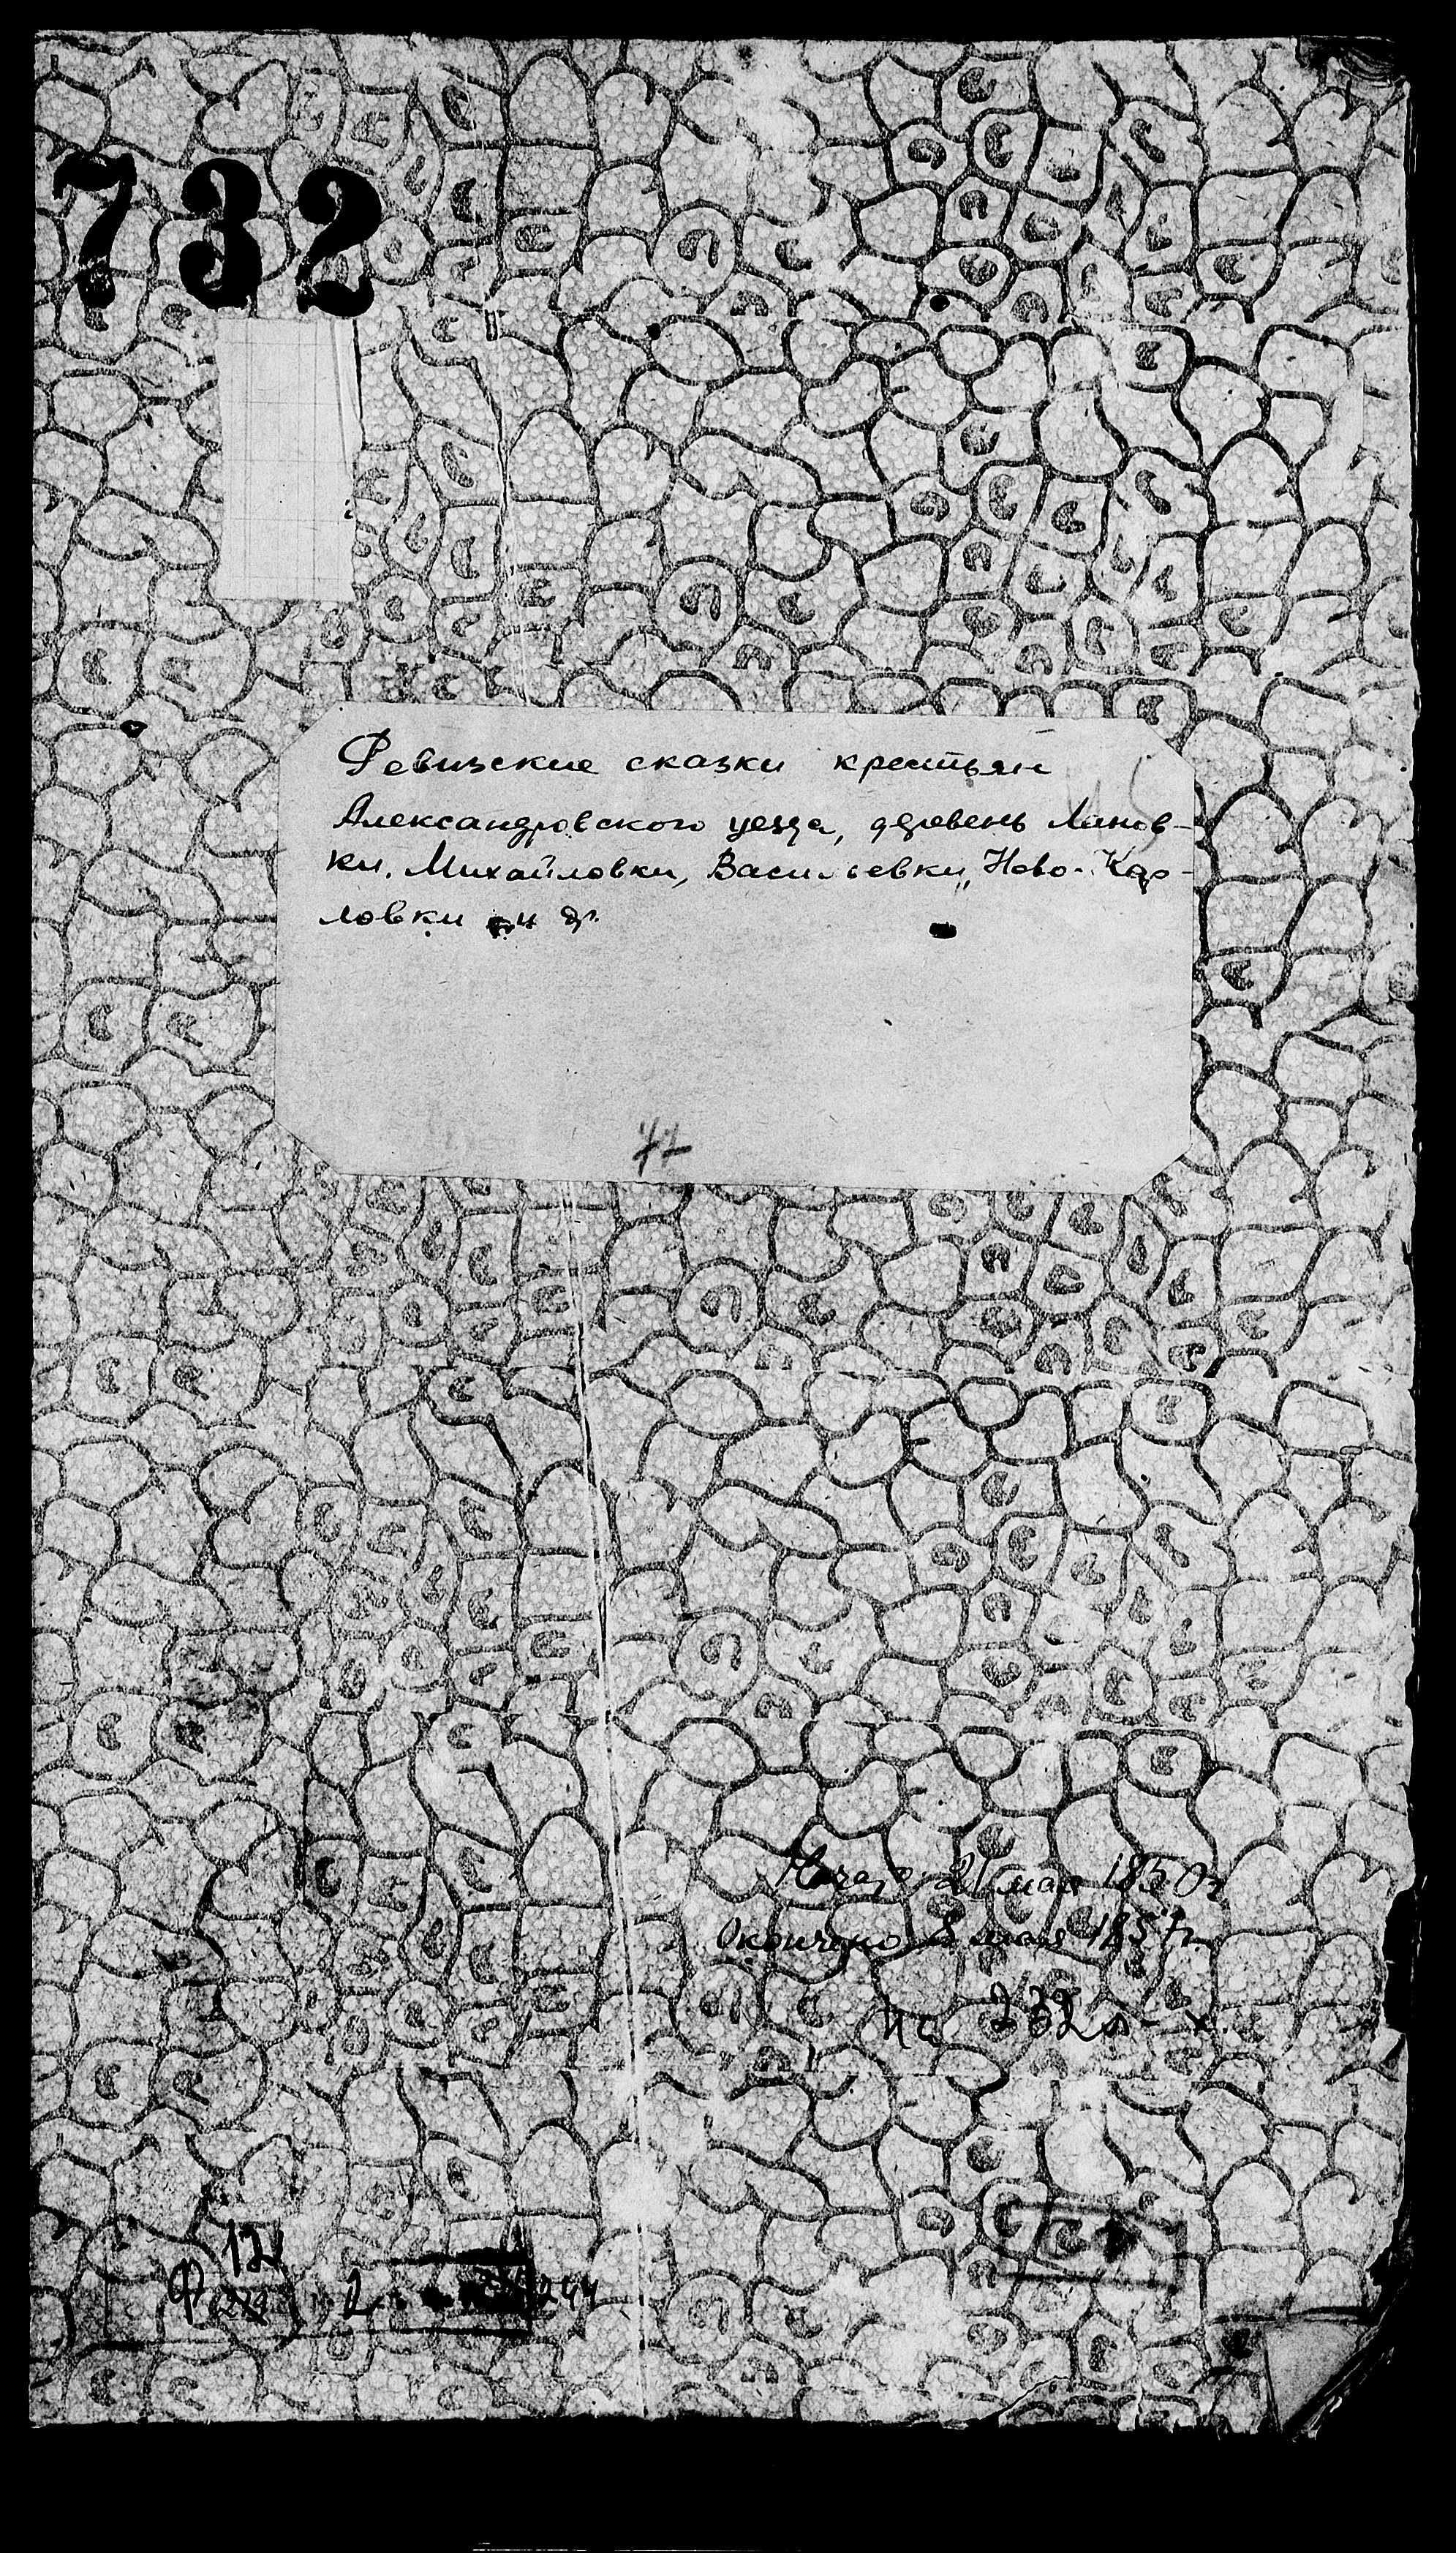 732
Ревизские сказки крестьян
Александровского уезда, деревень Ланов-
ки, Михайловки, Васильевки, Ново-Кар-
ловки и др.
77
Начато 21 мая 1850 г
Окончено 8 мая 1857 г.
на 232 л-х.
12
Ф